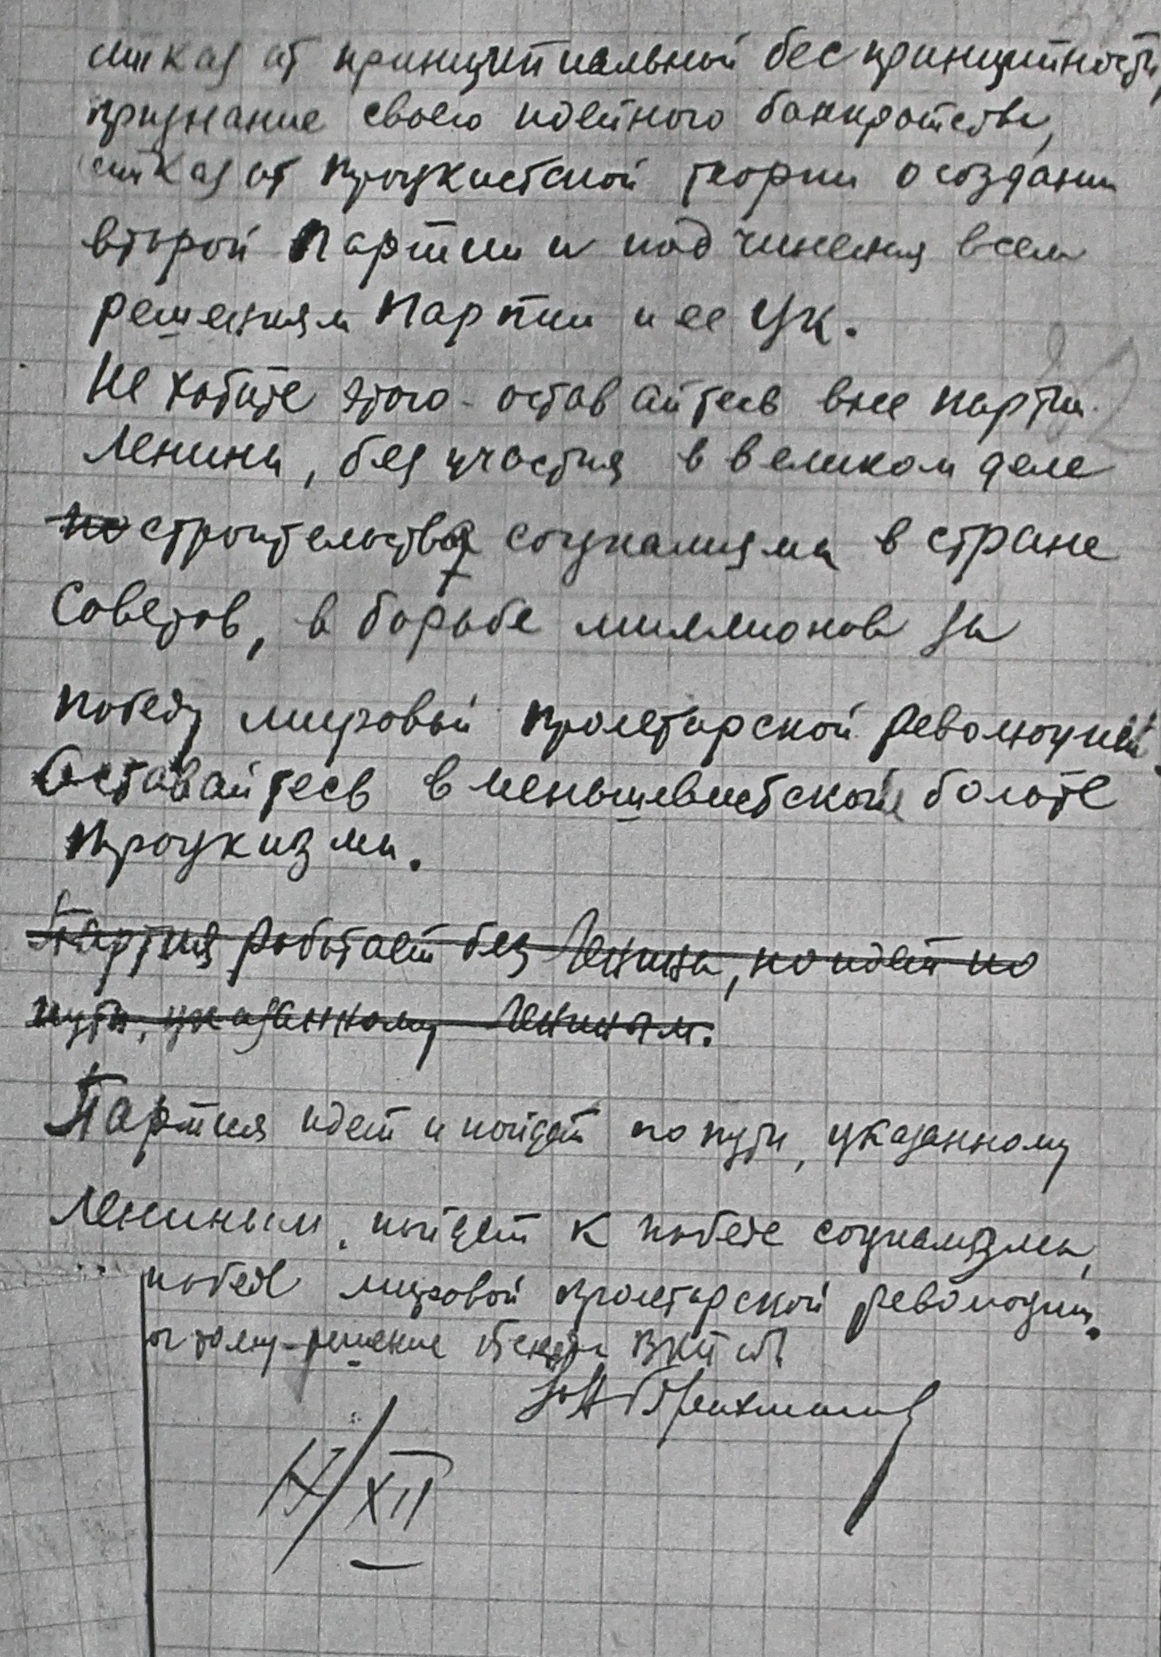 отказ от принципиальной беспринципности,
признание своего идейного банкротства,
отказ от троцкистской теории о создании
второй партии и подчинения всем
решениям партии и ее ЦК.
Не хотите этого - оставайтесь вне партии
Ленина, без участия в великом деле
по строительства социализма в стране
Советов, в борьбе миллионов за
победу мировой пролетарской революции.
Оставайтесь в меньшевистской болоте
троцкизма.
Партия работает без Ленина, но идет по
пути, указанному Лениным.
Партия идет и пойдет по пути, указанному
Лениным, пойдет к победе социализма,
победе мировой пролетарской революции.
тому - решение съезда ВКП(б)
XII